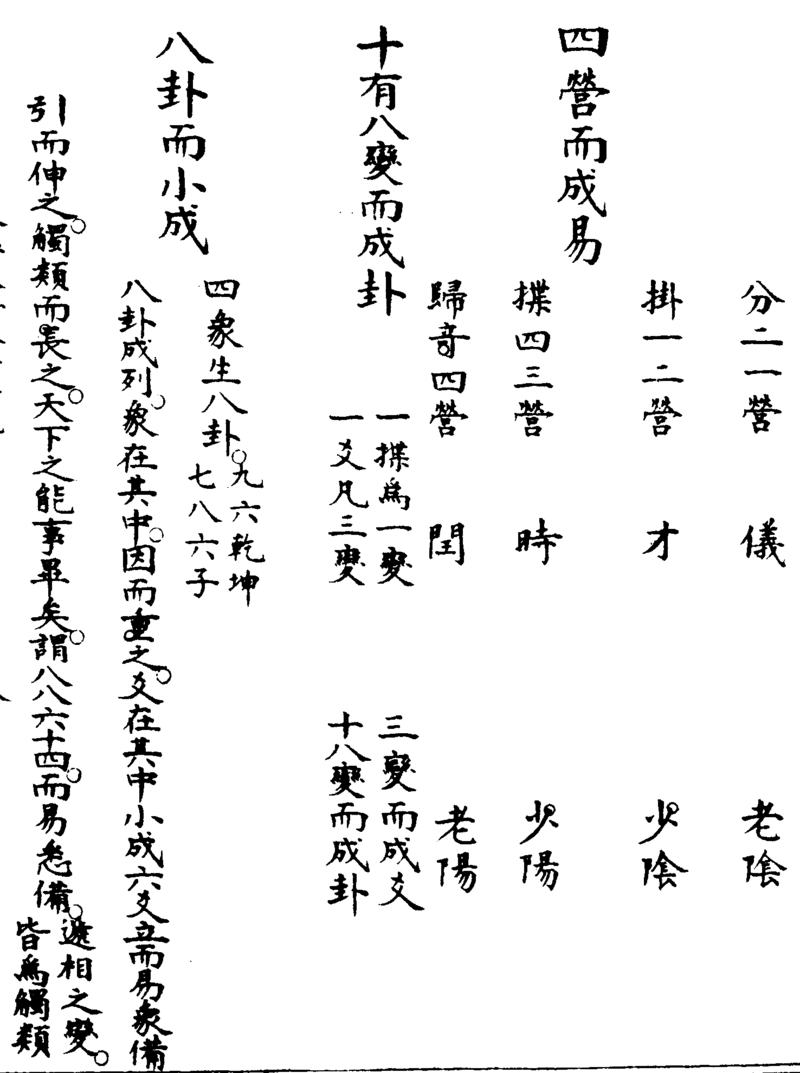 四營而成易
分二一營　儀　老陰
掛一二營　才　少陰
揲四三營　時　少陽
歸竒四營　閏　老陽
十有八變而成卦
一揲爲一變　三變而成爻
一爻凡三變　十八變而成卦
八卦而小成
四象生八卦。九六乾坤
七八六子
八卦成列。象在其中。因而重之。爻在其中小成六爻立而易象備
引而伸之。觸類而長之。天下之能事畢矣。謂八八六十四。而易悉備。遞相之變。
皆爲觸類